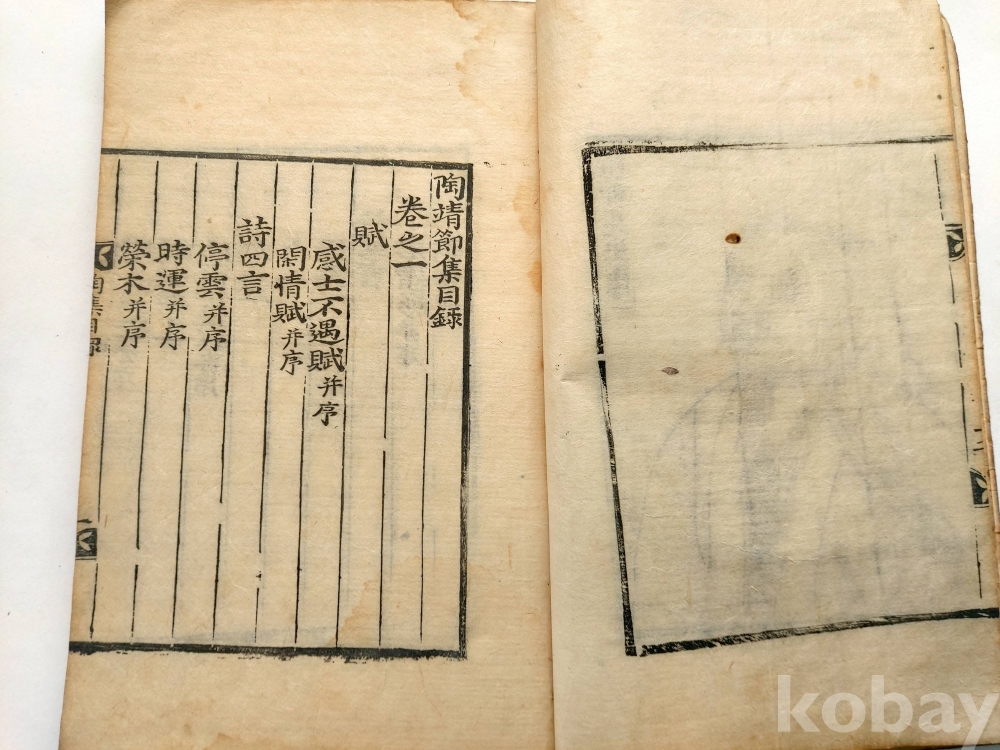 陶靖節集目錄
卷之一
賦
感士不遇賦并序
閑情賦并序
詩四言
停雲并序
時運并序
榮木并序
陶集目錄
kobay